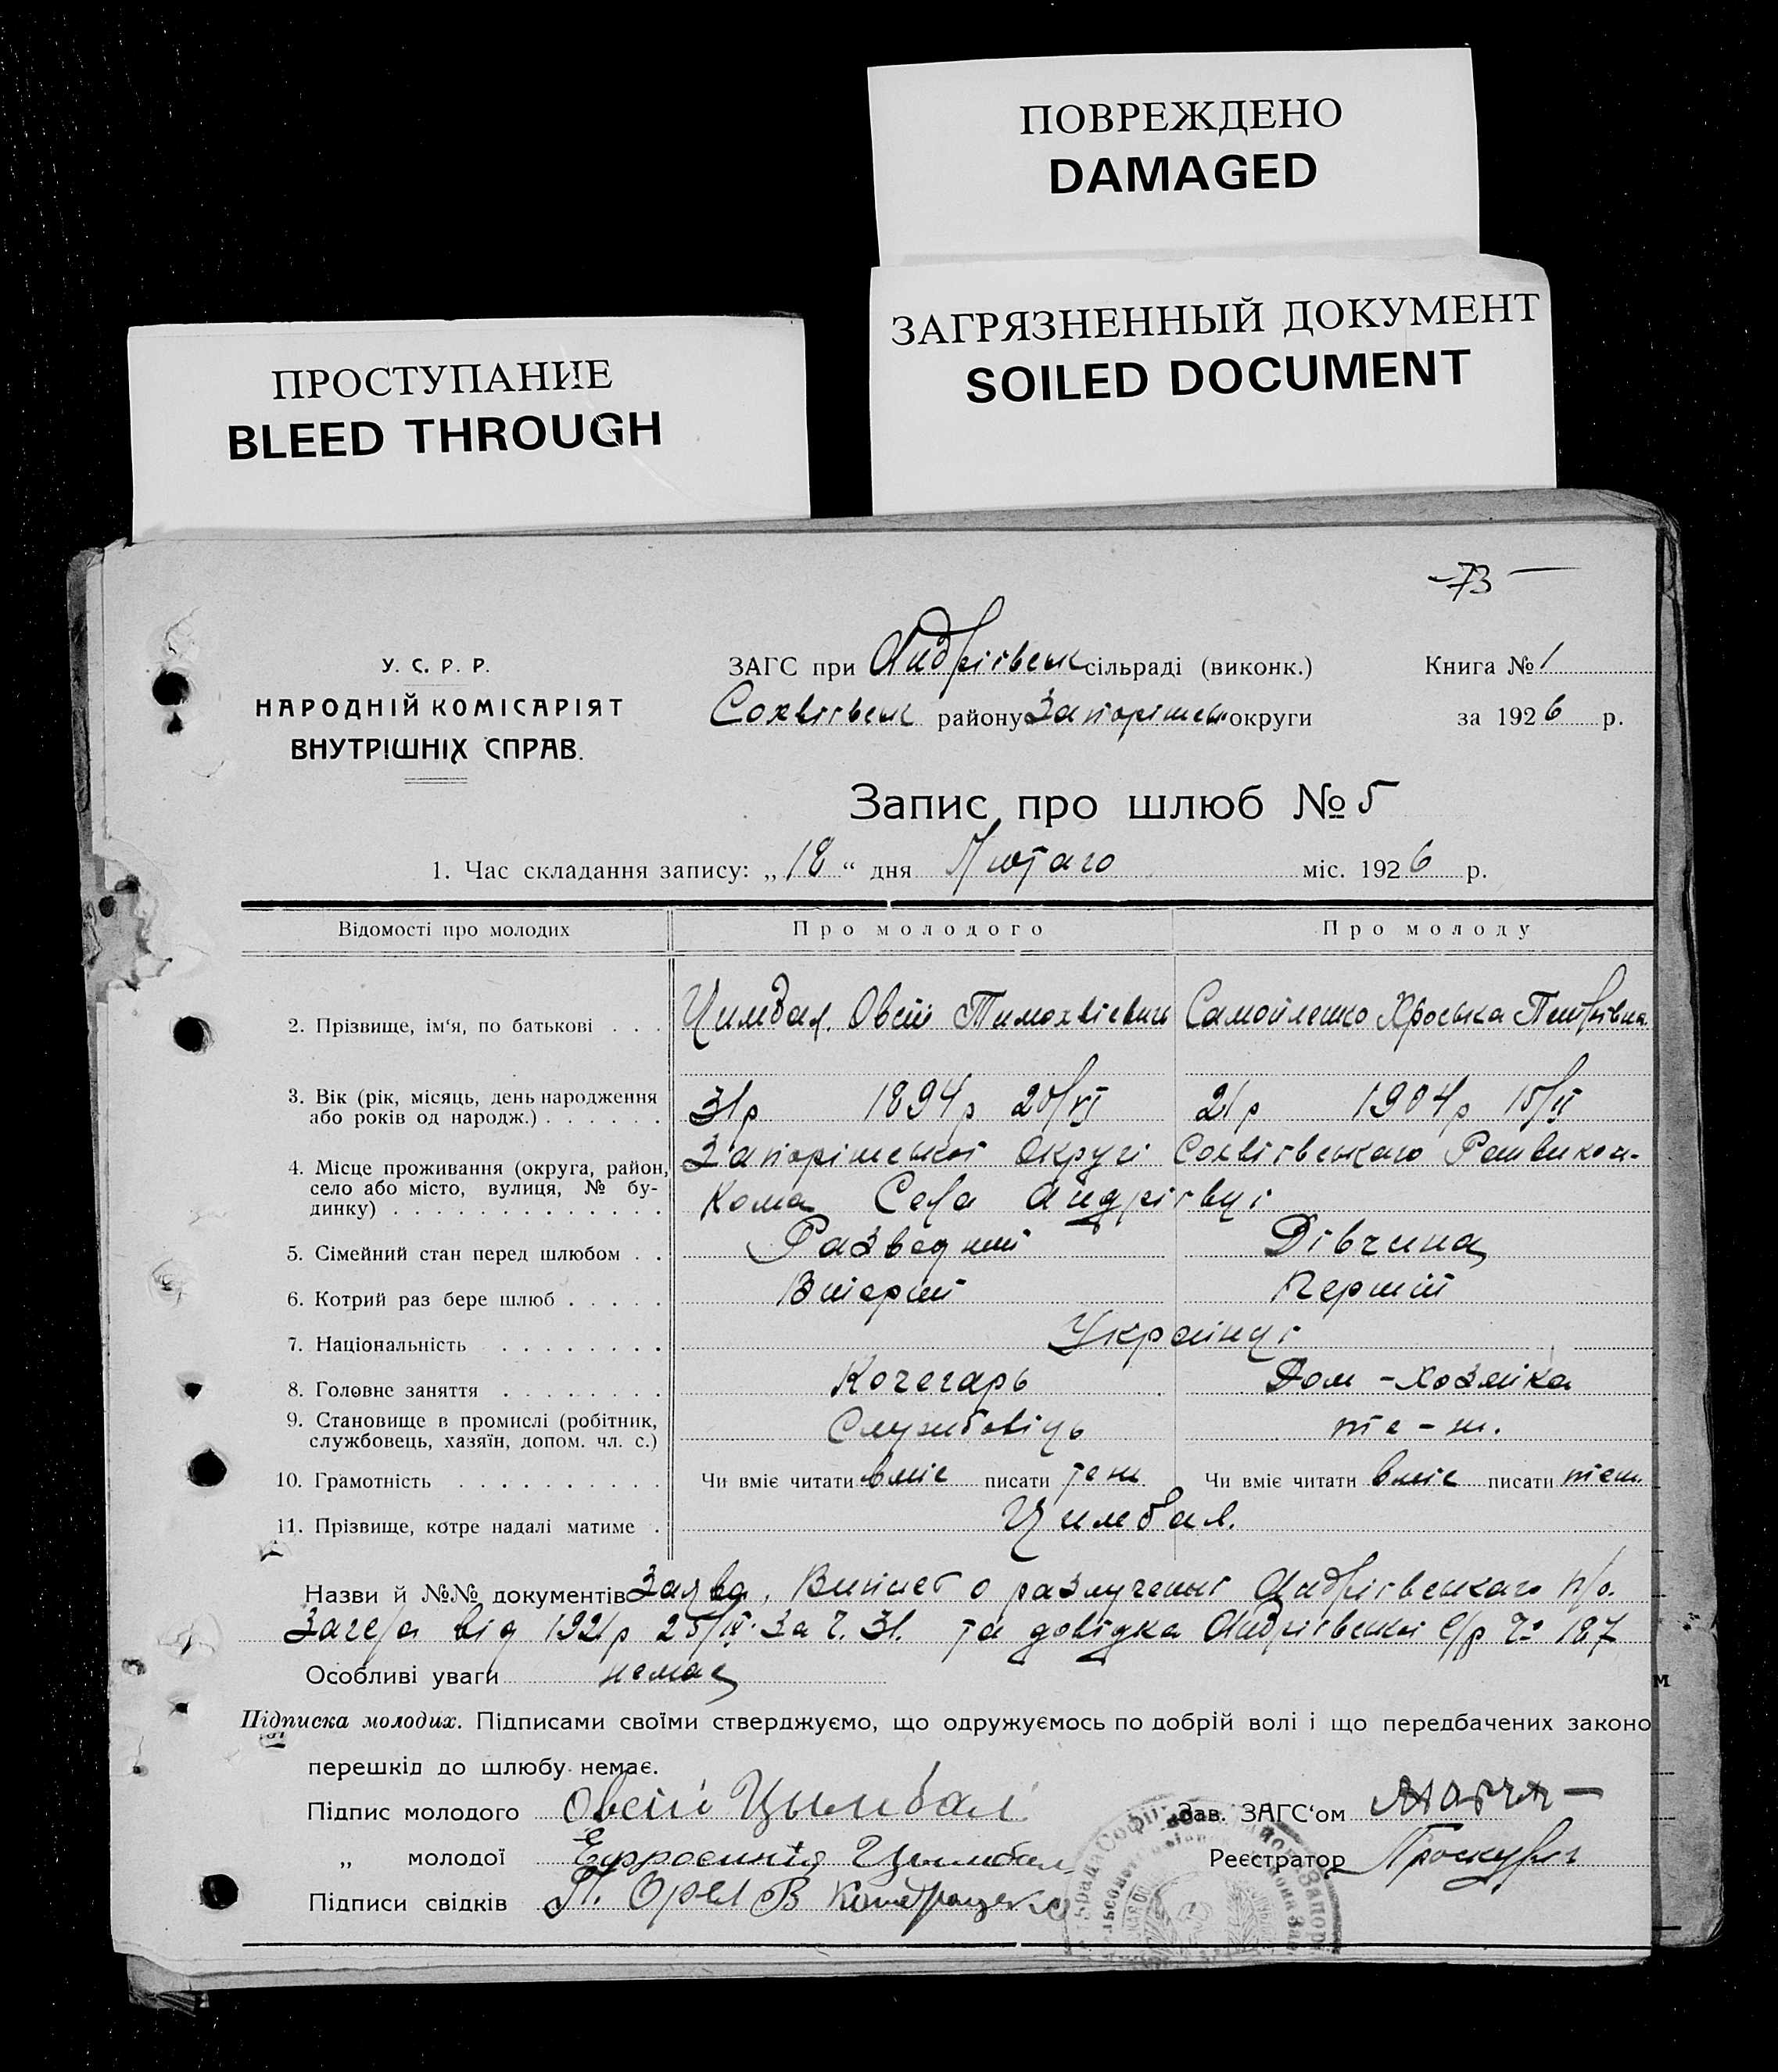 ПОВРЕЖДЕНО
DAMAGED
ЗАГРЯЗНЕННЫЙ ДОКУМЕНТ
SOILED DOCUMENT
ПРОСТУПАНИЕ
BLEED THROUGH
-73-
У. С. Р. Р.
НАРОДНІЙ КОМІСАРІЯТ
ВНУТРІШНІХ СПРАВ.
ЗАГС при Андрієвськ сільраді (виконк.) Книга № 1
Сохвієвськ району Запоріжськ округи за 1926 р.
Запис про шлюб № 5
1. Час складання запису: „18“ дня Лютаго міс. 1926 р.
Відомості про молодих Про молодого Про молоду
2. Прізвище, ім‘я, по батькові . . . Цимбал. Овсій Тимохвієвич Самойленко Хроська Петрівна
3. Вік (рік, місяць, день народження
або років од народж.) . . . . . . 31р 1894р 20/VI 21р 1904р 15/II
4. Місце проживання (округа, район, Запоріжської округі Сохвієвськаго Райвикон-
село або місто, вулиця, № бу-
динку) . . . . . . . . . . . . . кома Села Андрієвці
5. Сімейний стан перед шлюбом . . Разведений Дівчина
6. Котрий раз бере шлюб . . . . . Вторий Перший
7. Національність . . . . . . . . Українці
8. Головне заняття . . . . . . . . Кочегарь Дом-хозяйка
9. Становище в промислі (робітник,
службовець, хазяїн, допом. чл. с.) Службовіць те-ж.
10. Грамотність . . . . . . . . . . Чи вміє читати вміє писати теж Чи вміє читати вміє писати теж.
11. Прізвище, котре надалі матиме . Цимбал.
Назви й №№ документів Заява, Випис о разлученні Андрієвськаго п/о.
Загса від 1921р 25/IX. За ч. 31. та довідка Андрієвської С/р Чо 187
Особливі уваги немає
Підписка молодих. Підписами своїми стверджуємо, що одружуємось по добрій волі і що передбачених законо
м
перешкід до шлюбу немає.
Підпис молодого Овсій Цымбал Зав. ЗАГС‘ом
„ молодої Ефросинія Цымбал Реєстратор Проскурня
Підписи свідків П. Орел В Кондраценко